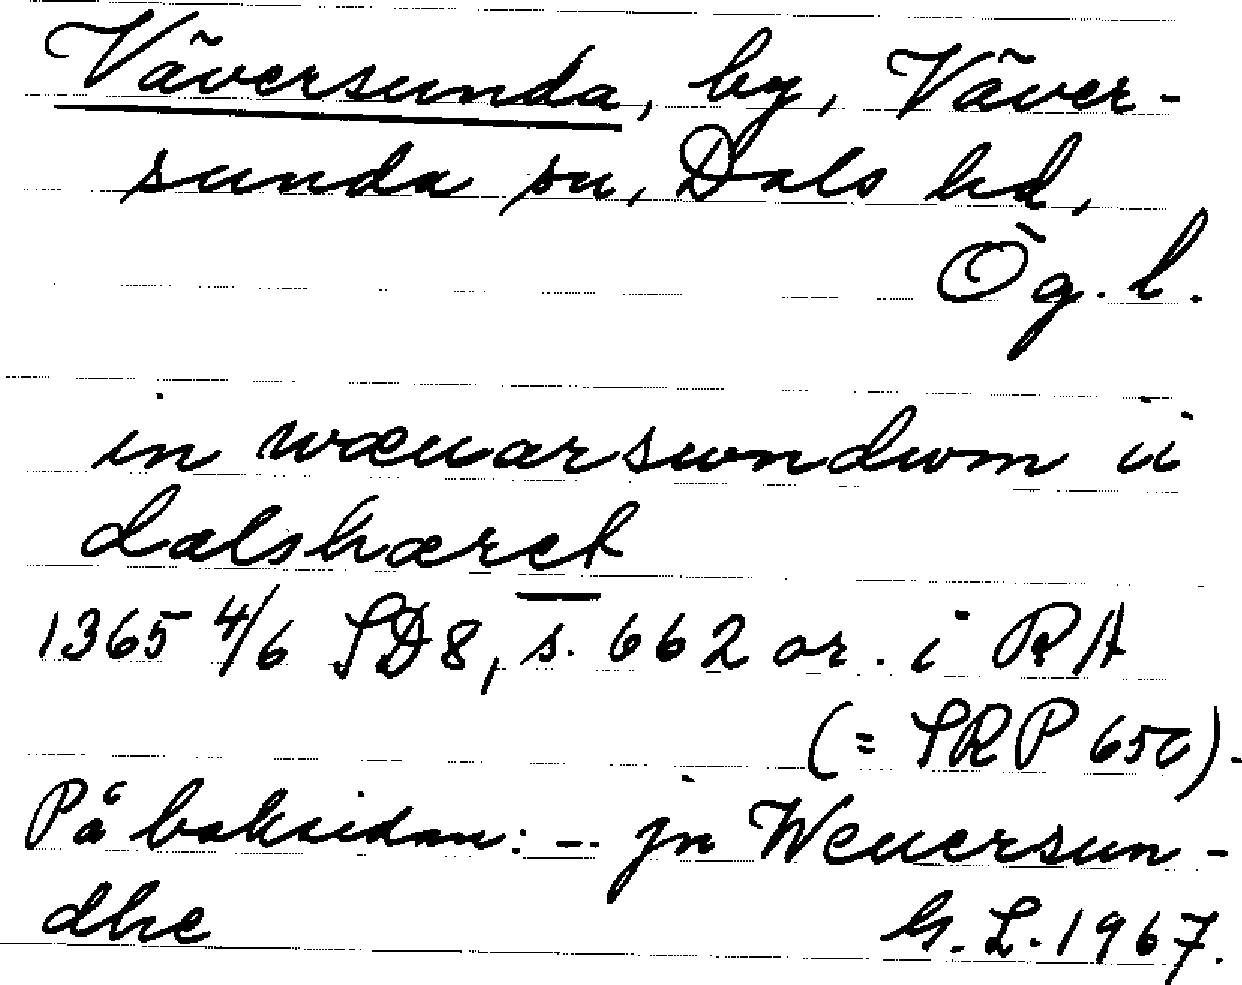 Väversunda, by, Väver-
sunda sn, Dals hd,
Ög. l.
in wæuarswndwm ii
dalshæret
1365 4/6 SD8, s. 662 or. i RA
(= SRP 650).
På baksidan: -- jn Weuersun-
dhe
G. L. 1967.